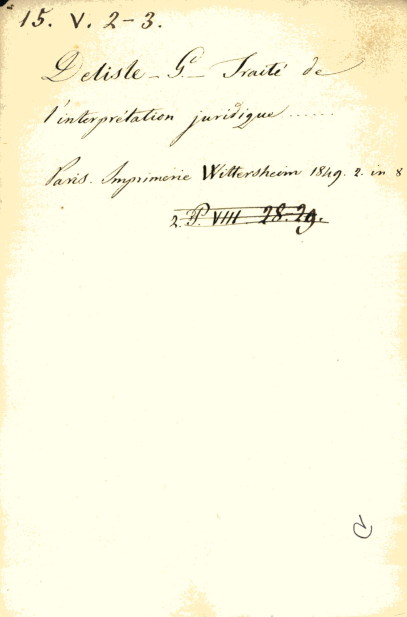 15. V. 2-3.
Delisle - G.e - Traité de
l'interprétation juridique ......
Paris. Imprimerie Wittersheim 1849. 2. in 8
2. P. VIII 28. 29.